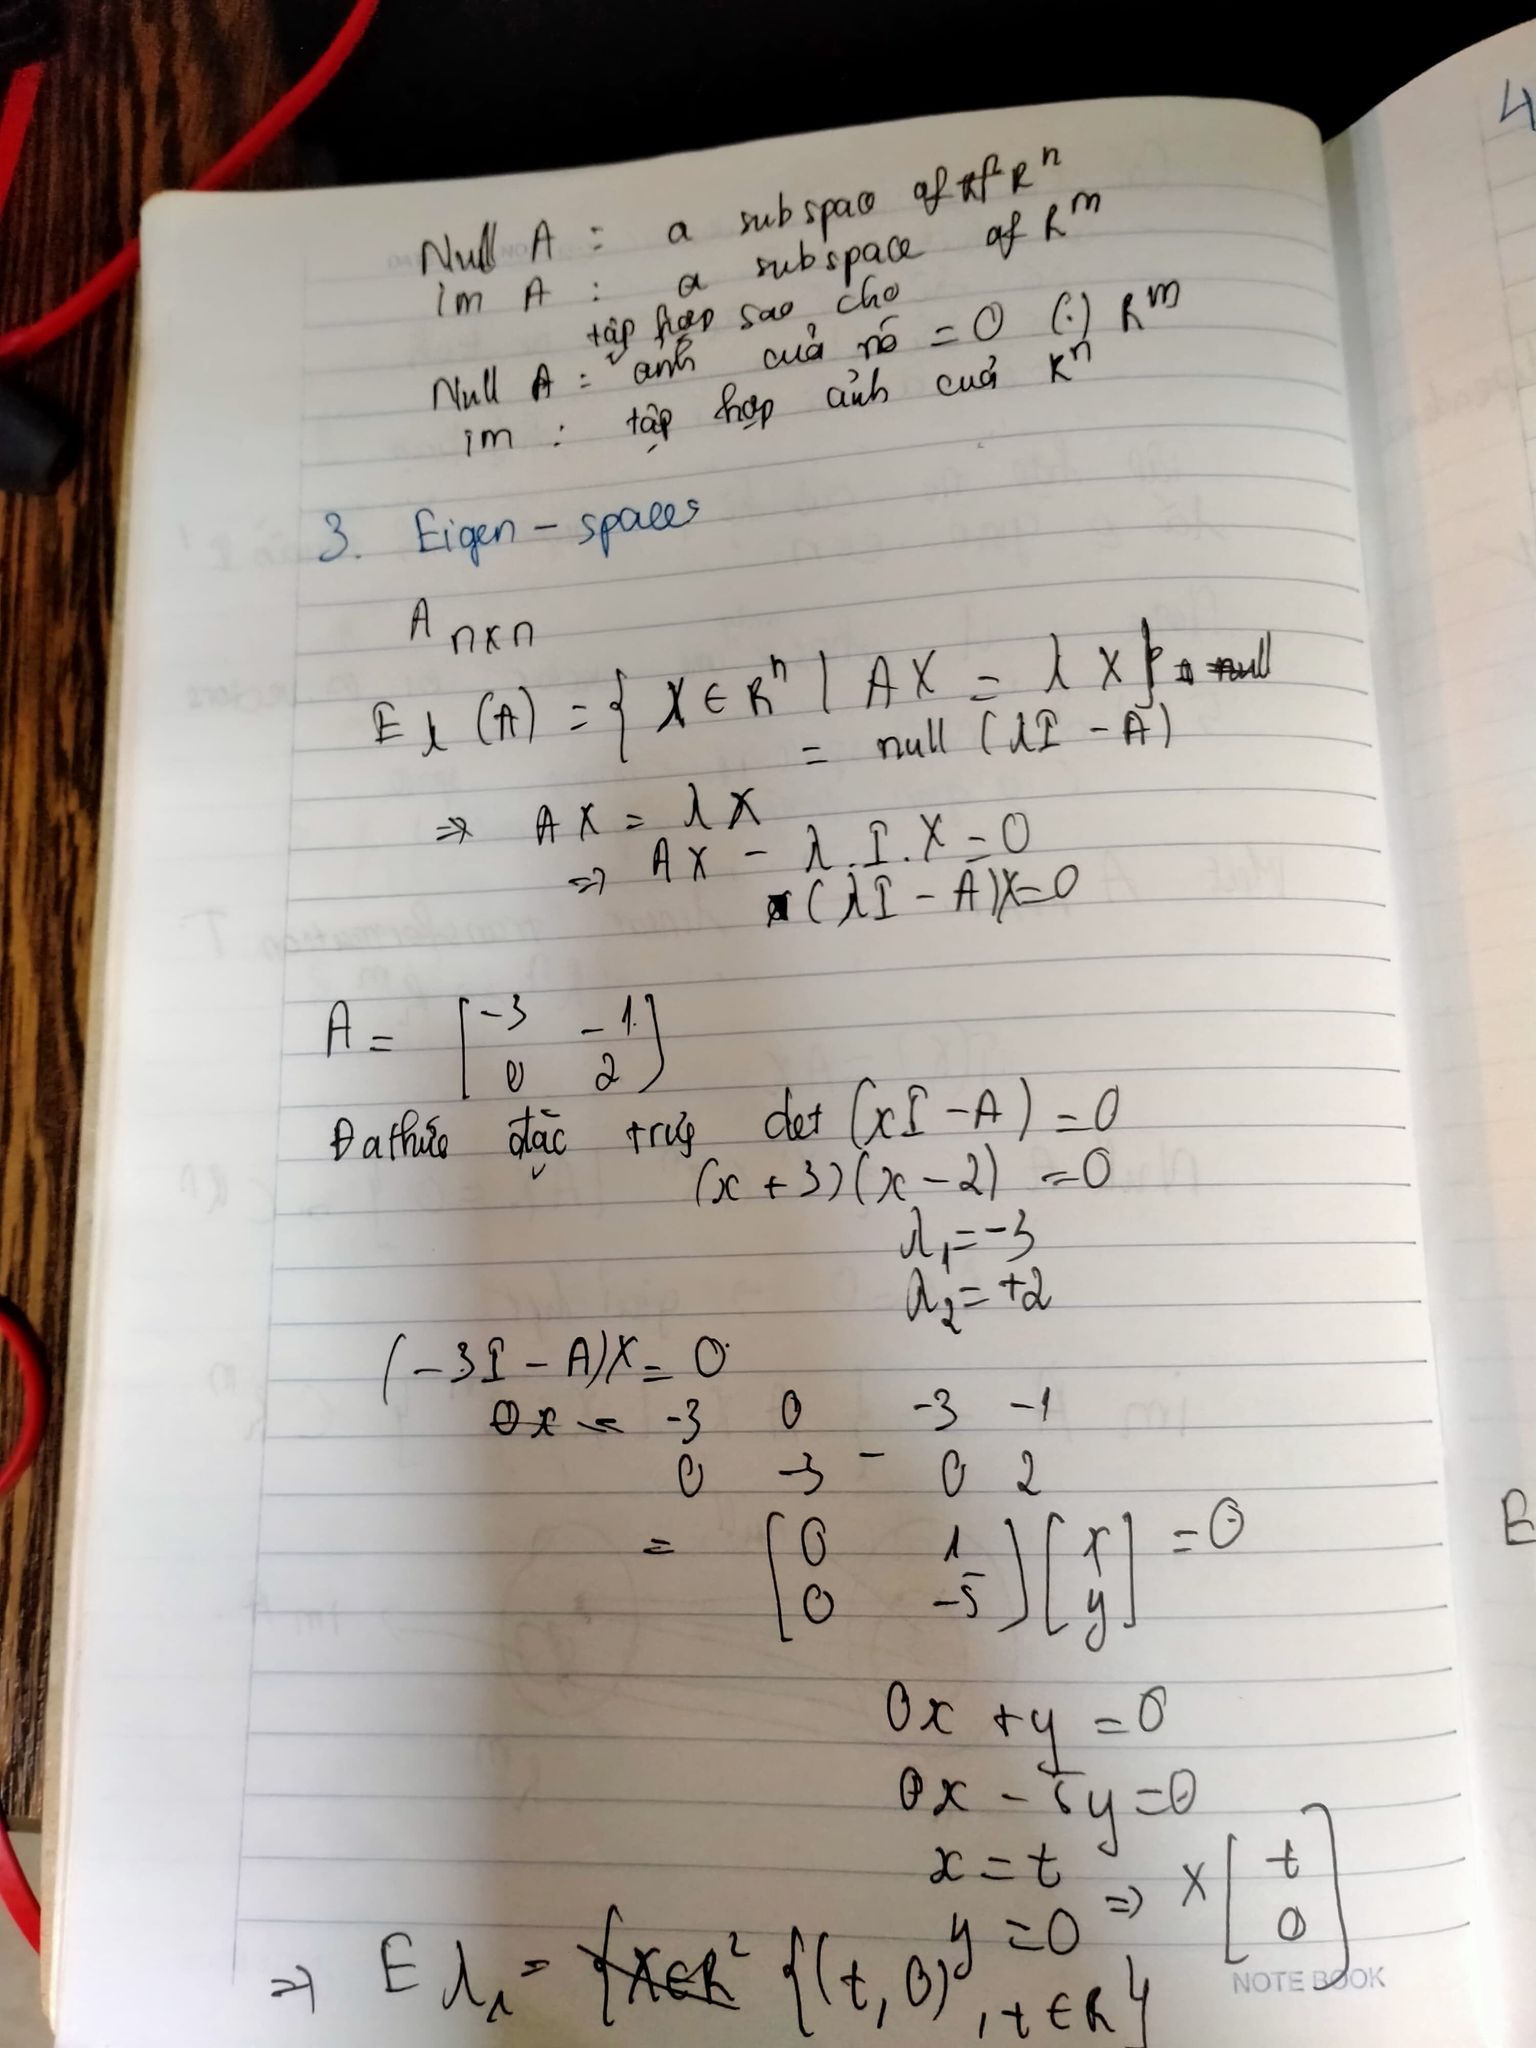 Null A : a subspace of R^n
im A : a subspace of R^m
tập hợp sao cho
Null A = ảnh của nó = 0 (:) R^m
im : tập hợp ảnh của R^n
3. Eigen - spaces
A n×n
E λ (A) = { X ∈ R^n | AX = λ X } null
= null (λI - A)
=> AX = λX
=> AX - λ.I.X = 0
(λI - A)X = 0
A = [ -3 -1
0 2 ]
Đa thức đặc trưng det (xI - A) = 0
(x + 3)(x - 2) = 0
λ1 = -3
λ2 = +2
(-3I - A)X = 0
0x = -3 0 -3 -1
0 -3 - 0 2
= [ 0 1 ] [ x ] = 0
[ 0 -5 ] [ y ]
0x + y = 0
0x - 5y = 0
x = t
y = 0 => X [ t
0 ]
=> E λ1 = {X∈R^2 {(t, 0), t ∈ R}
NOTE BOOK
4
E